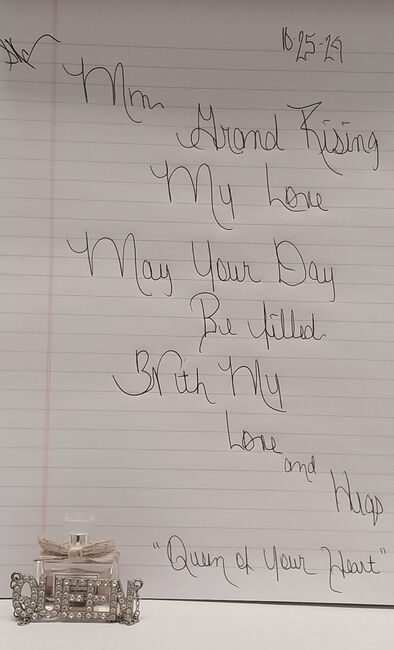 10-25-24
Mm
Grand Rising
My Love
May Your Day
Be filled
With My
Love
and
Hugs
"Queen of Your Heart"
QUEEN